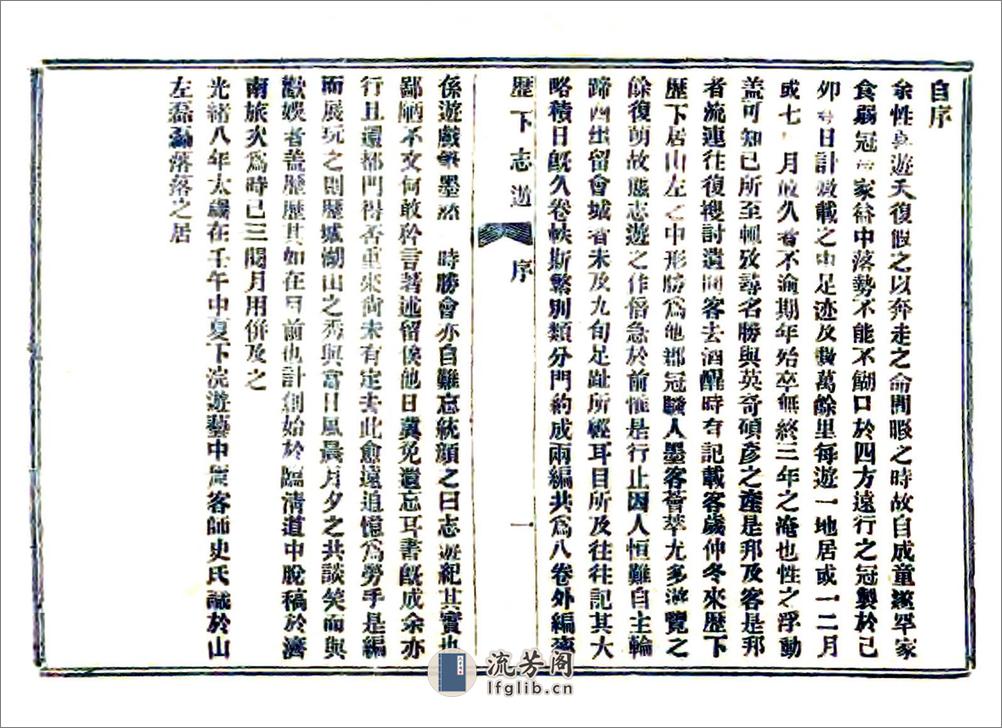 自序
余性喜遊天復假之以奔走之命間暇之時故自成童遂罕家
食弱冠 家益中落勢不能不餬口於四方遠行之冠製於己
卯 日計數載之中足迹及數萬餘里每遊一地居或一二月
或七 月最久者不渝期年殆卒無終三年之淹也性之浮動
盖可知已所至輒攷尋名勝與英奇碩彥之產是邦及客是邦
者流連往復搜討遺聞客去酒醒時有記載客歲仲冬來歷下
歷下居山左之中形勝爲他郡冠騷人墨客薈萃尤多游覽之
餘復萌故態志遊之作倍急於前惟是行止因人恒難自主輪
蹄西出留會城者未及九旬足趾所經耳目所及往往記其大
略積日既久卷帙斯繁別類分門約成兩編共爲八卷外編率
歷下志遊 序 一
係遊戲筆墨然 時勝會亦自難忘統顔之曰志遊紀其實也
鄙陋不文何敢矜言著述留俟他日冀免遺忘耳書既成余亦
行且還都門得否重來尙未有定去此愈遠追憶爲勞手是編
而展玩之則歷城湖山之秀與當日風晨月夕之共談笑而與
歡娛者盖歷歷其如在目前也計創始於臨清道中脫稿於濟
南旅次爲時已三閱月用併及之
光緒八年太歲在壬午中夏下浣遊藝中 客師史氏識於山
左磊磊落落之居
流芳阁
lfglib.cn